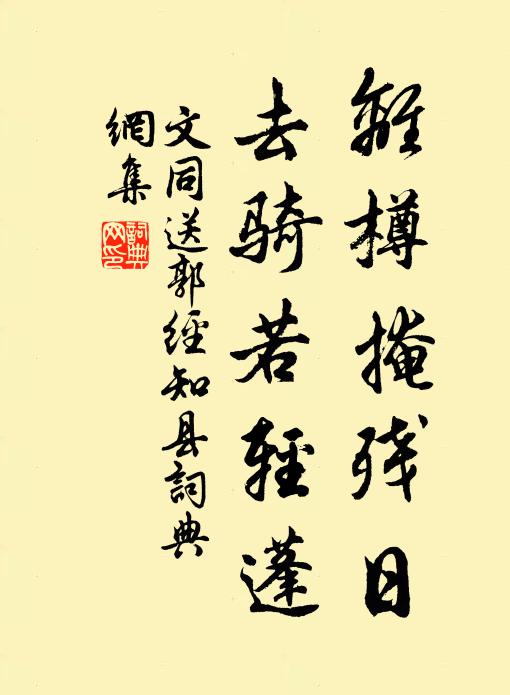 離樽掩残日
去骑若輕蓬
文同送郭經知县詞典
網集
詞典網印